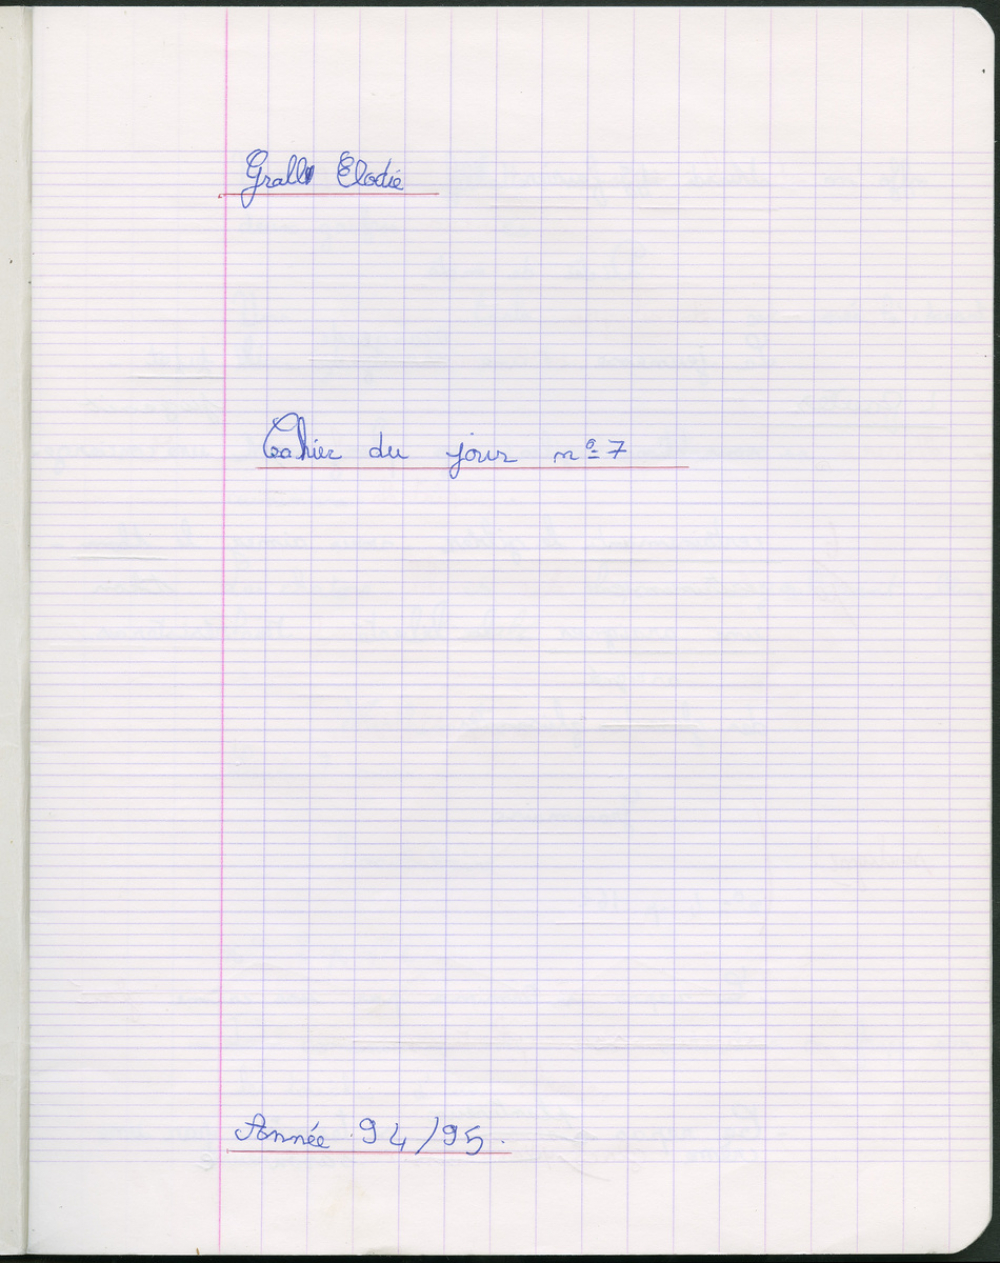 Grall Elodie
Cahier du jour n° 7
Année 94/95.